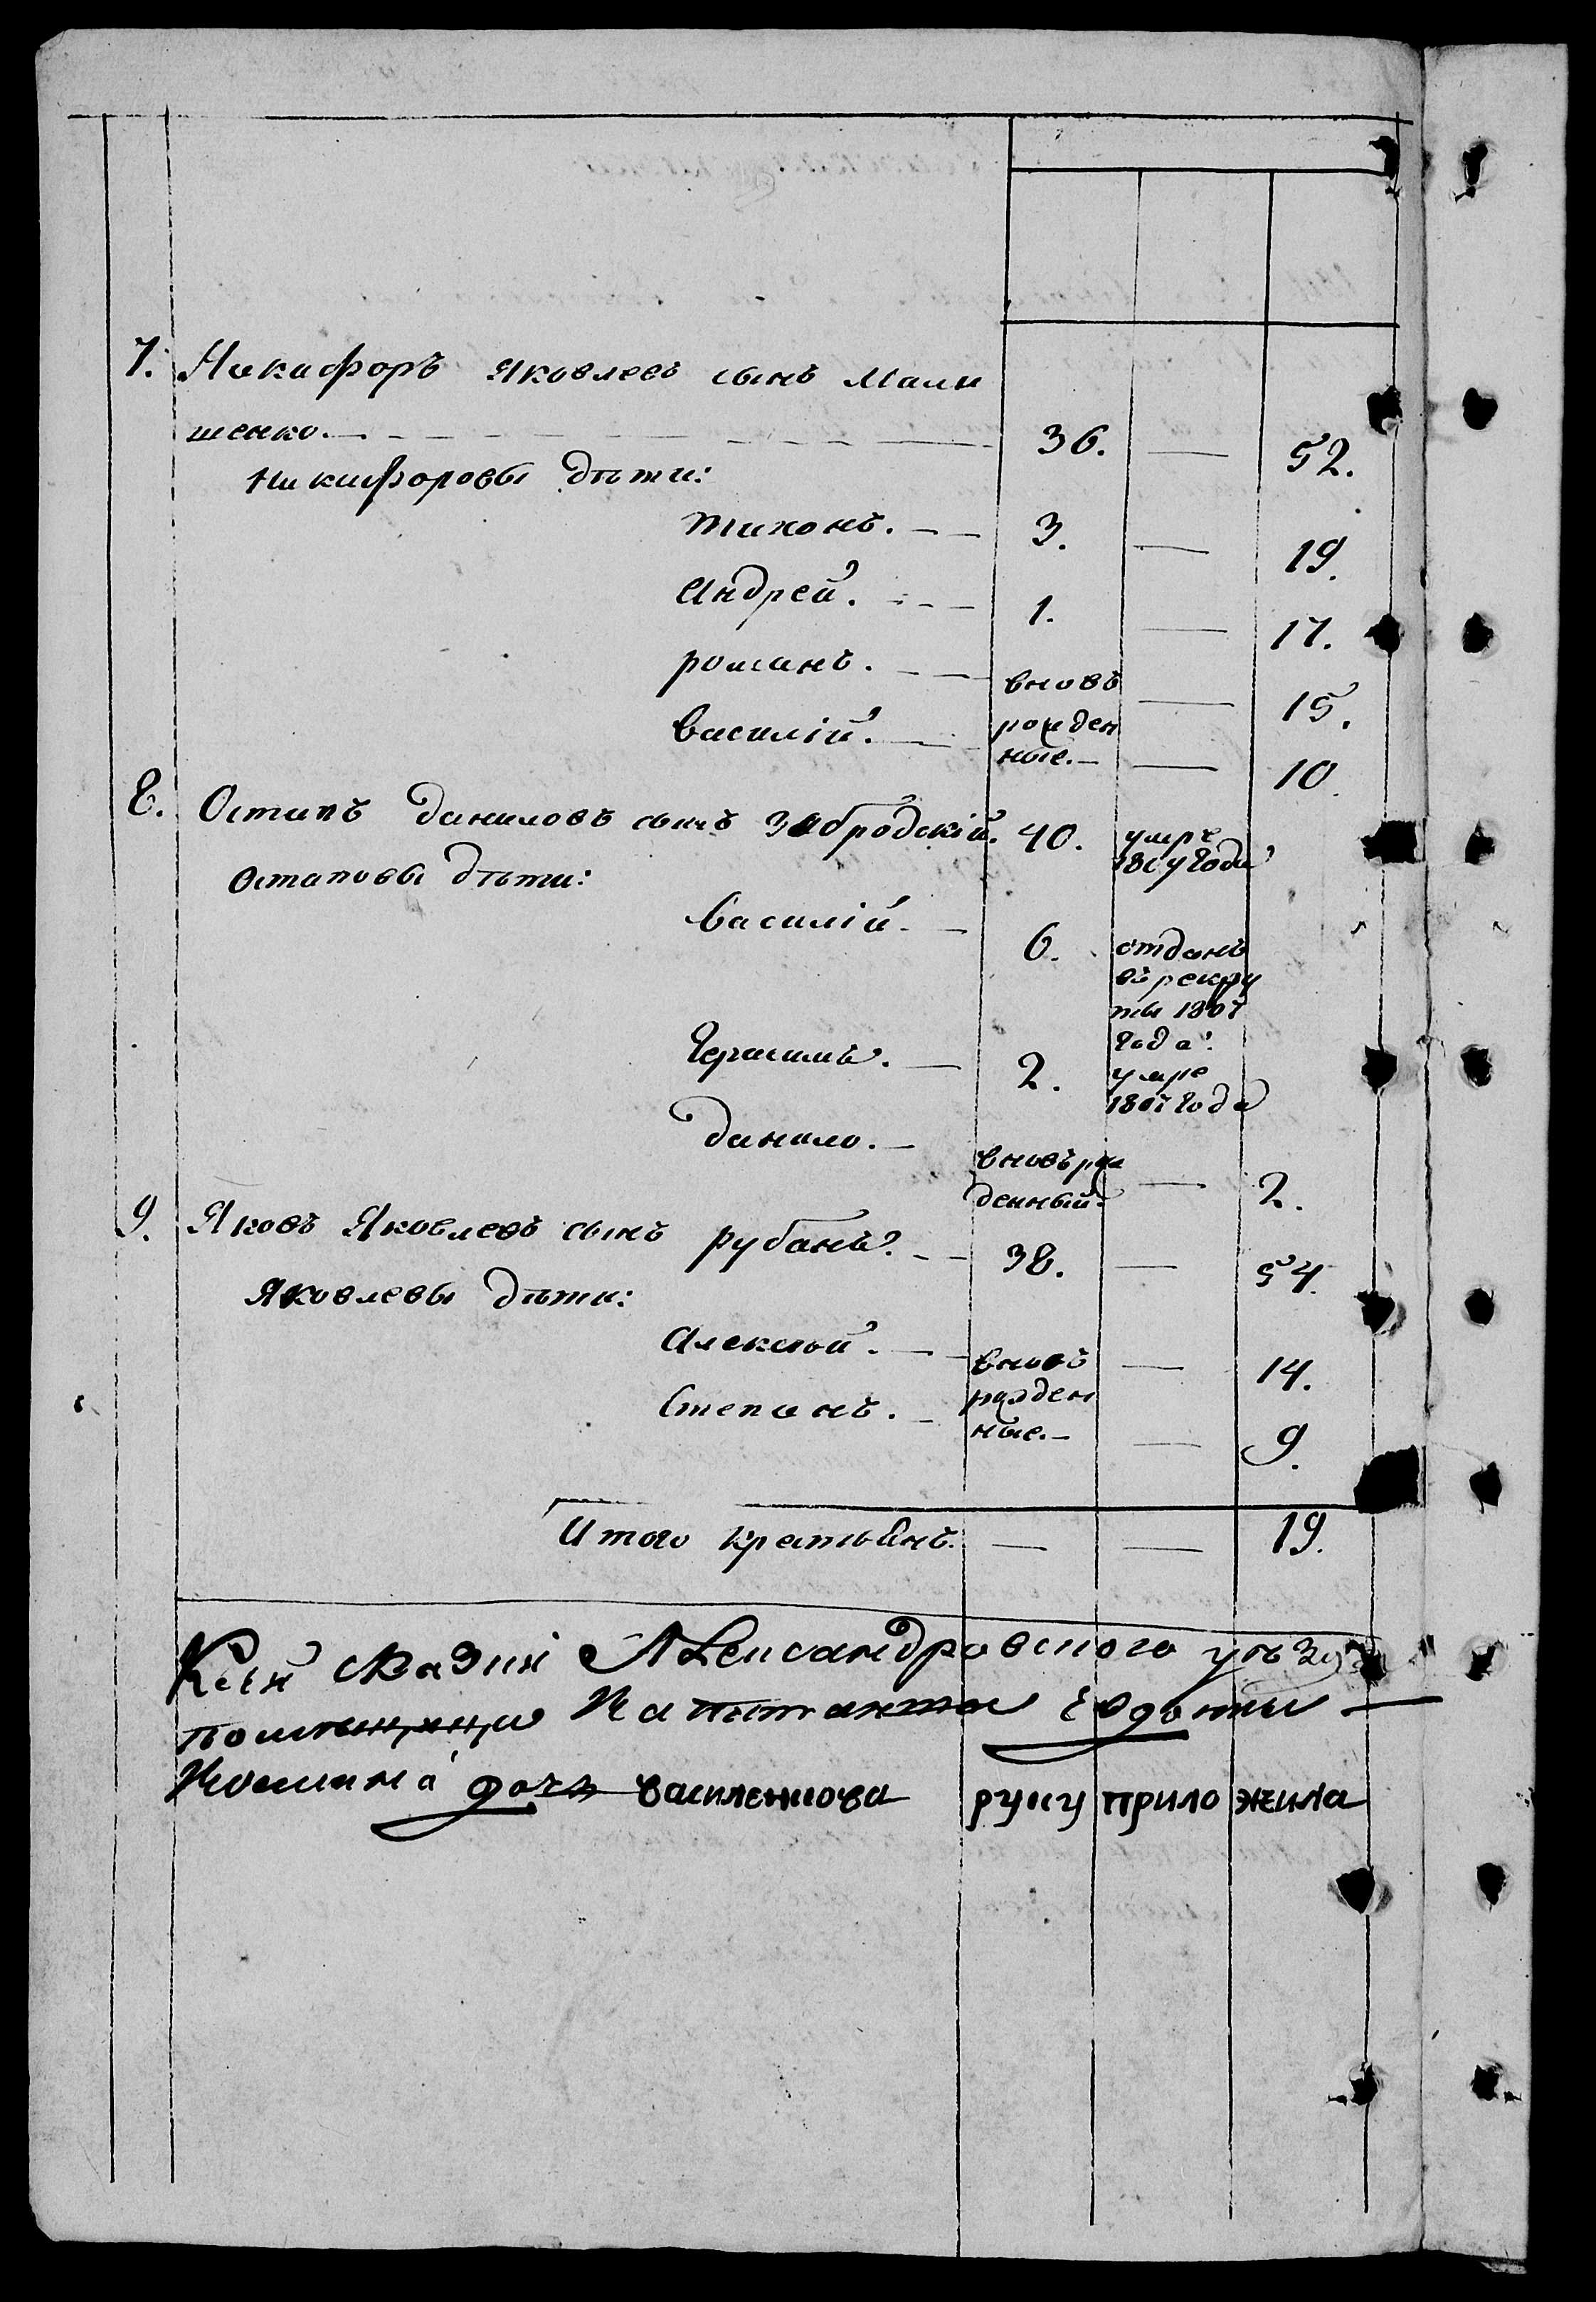 7. Никифоръ Яковлевъ сынъ Мали
шенко. 36. — 52.
Никифоровы дѣти:
Тихонъ. 3. — 19.
Андрей. 1. — 17.
романъ. вновь — 15.
Василій. рожден
ные. — 10.
8. Остапъ Даниловъ сынъ Забродскій. 40. умре
Остаповы дѣти: года
Василій. 6. отданъ
въ рекру
ты 1807
года.
Герасимъ. 2. умре
1807 года
Данило. вновь рож
денный. — 2.
9. Яковъ Яковлевъ сынъ рубанъ. 38. — 54.
Яковлевы дѣти:
Алексѣй. вновь — 14.
рожден
Степанъ. ные. — 9.
Итого крестьянъ. — — 19.
Ксей Александровского уѣзда
помещица Капитанша Евдокия
дочь Василенкова руку приложила